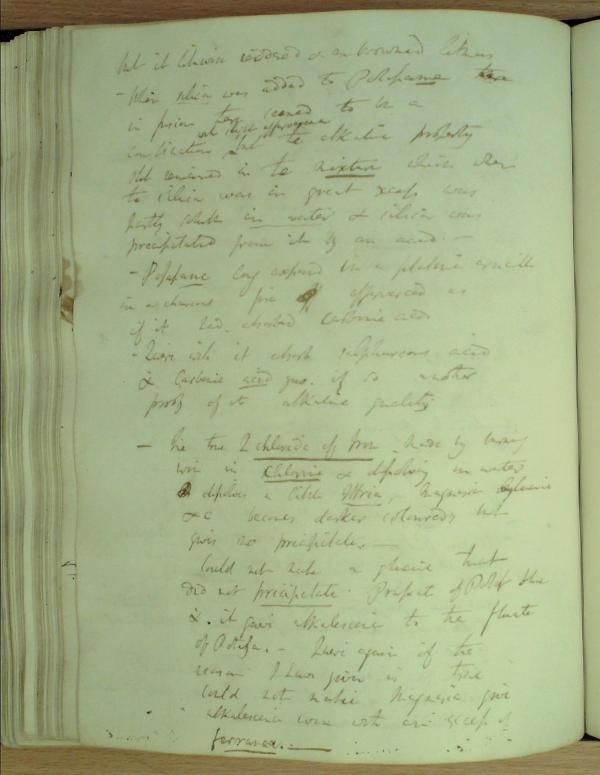 but it likewise reddened & even browned litmus
- When silica was added to Potassane
in fusion there seemed to be a
with slight effervescence
combination but the alkaline property
still remained in the mixture which when
the silica was in great excess was
partly soluble in water & silica was
precipitated from it by an acid. -
- Potassane long exposed in a platina crucible
in a charcoal fire effervesced as
if it had absorbed Carbonic acid
- Quere will it absorb sulphureous acid
& Carbonic acid gas. if so another
proof of its alkaline quality
- The true 2 chloride of Iron made by burning
iron in Chlorine & dissolving in water
dissolves a little Ittria, Magnesia Glucine
&c becomes darker coloured but
gives no precipitate. -
Could not make a glucine that
did not precipitate Prussiat of Potash blue
& it gives alkalescence to the fluate
of Potassa. - Quere again if the
reason I have given is true
Could not make Magnesia give
alkalescence even with an excess of
ferranea. -